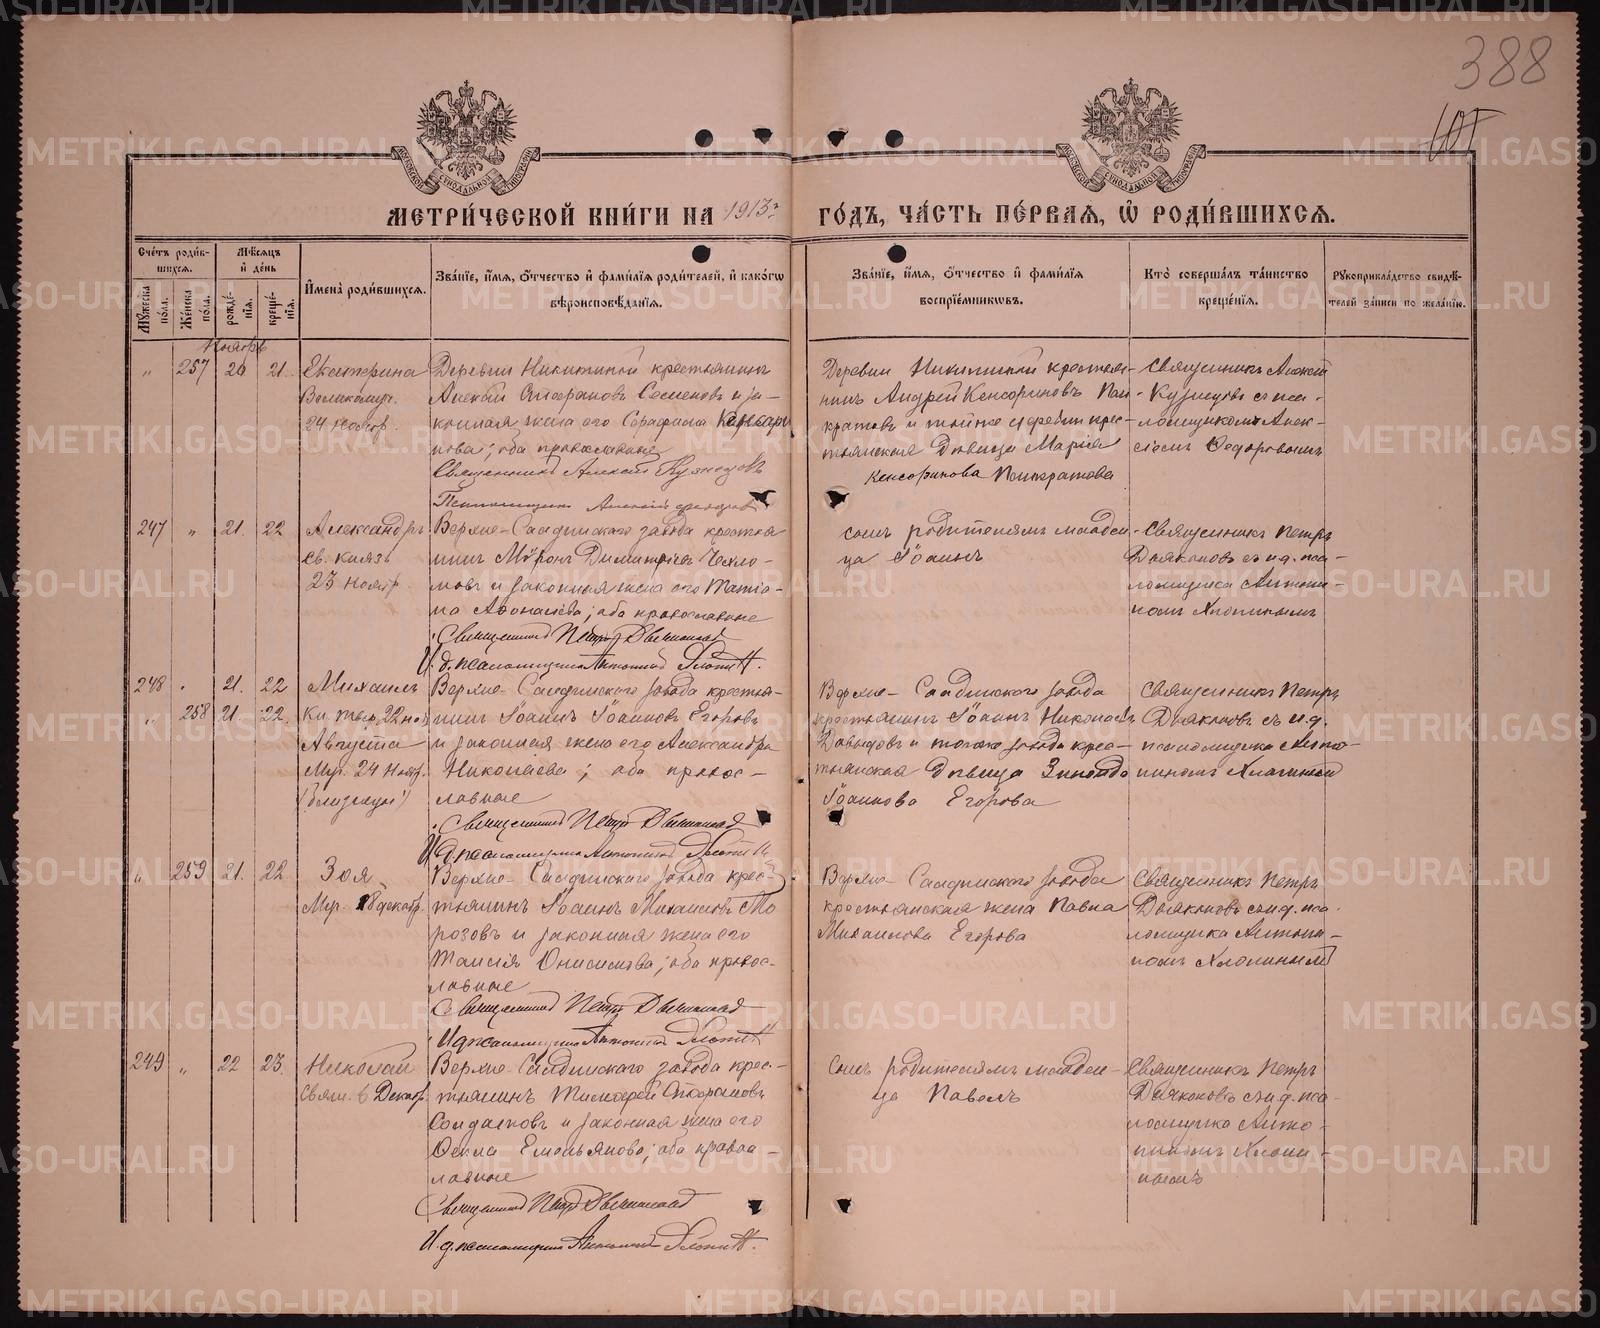 388
101
МЕТРИ́ЧЕСКОЙ КНИ́ГИ НА 1913 г.
ГО́ДЪ, ЧА́СТЬ ПЕ́РВАЯ, Ѡ РОДИ́ВШИХСЯ.
Сче́тъ роди́в-
шихся.
Мѣ́сяцъ
и де́нь
Му́жеска
по́ла.
Же́нска
по́ла.
рожде́-
нія.
креще́-
нія.
Имена̀ роди́вшихся.
Зва́ніе, и́мя, о́тчество и фами́лія роди́телей, и како́гѡ
вѣроисповѣ́данія.
Зва́ніе, и́мя, о́тчество и фами́лія
воспріе́мниковъ.
Кто̀ соверша́лъ та́инство
креще́нія.
Рукоприкла́дство свидѣ́-
телей за́писи по жела́нію.
Ноябрь
„ 257 20 21
Екатерина
Великомуч.
24 Ноябр.
Деревни Никитиной крестьянинъ
Алексѣй Стефановъ Семеновъ и за-
конная жена его Серафима
нова; оба православные
Священникъ Алексѣй Кузнецовъ
Псаломщикъ Алексѣй
Деревни Никитиной крестья-
нинъ Андрей Кенсориновъ Пан-
кратовъ и тойже деревни крес-
тьянская Дѣвица Марія
Кенсоринова Панкратова
Священникъ Алексѣй
Кузнецовъ съ пса-
ломщикомъ Алек-
сѣемъ Федоровымъ
247 „ 21. 22
Александръ
Св. Князь
23 Нояб.
Верхне-Салдинскаго завода крестья-
нинъ Мѵронъ Димитріевъ Чехло-
мовъ и законная жена его Татіа-
на Афонасіева; оба православные
Священникъ Петръ Дьяконовъ
И. д. псаломщика Антонинъ Хлопинъ.
сынъ родителямъ младен-
ца Іоаннъ
Священникъ Петръ
Дьяконовъ съ и.д. пса-
ломщика Антони-
номъ Хлопинымъ
248 „ 21. 22
Михаилъ
Кн. Твер. 22 Ноя
„ 258 21. 22.
Августа
Муч. 24 Нояб.
(близнецы)
Верхне-Салдинскаго завода крестья-
нинъ Іоаннъ Іоанновъ Егоровъ
и законная жена его Александра
Николаева; оба правос-
лавные
Священникъ Петръ Дьяконовъ
И. д. псаломщика Антонинъ Хлопинъ
Верхне-Салдинскаго завода
крестьянинъ Іоаннъ Николаевъ
Давыдовъ и тогоже завода крес-
тьянская дѣвица Зинаида
Іоаннова Егорова
Священникъ Петръ
Дьяконовъ съ и.д.
псаломщика Анто-
ниномъ Хлопинымъ
„ 259 21. 22
Зоя
Муч. 18 декабр.
Верхне-Салдинскаго завода крес-
тьянинъ Іоаннъ Михаиловъ Мо
розовъ и законная жена его
Таисія Онисимова; оба правос-
лавные
Священникъ Петръ Дьяконовъ
И д псаломщика Антонинъ Хлопинъ
Верхне-Салдинскаго завода
крестьянская жена Павла
Михаилова Егорова
Священникъ Петръ
Дьяконовъ съ и.д. пса-
ломщика Антони-
номъ Хлопинымъ
249 „ 22 23.
Николай
Свят. 6 Декабр.
Верхне-Салдинскаго завода крес-
тьянинъ Тимофей Стефановъ
Солдатовъ и законная жена его
Фекла Емельянова; оба правос-
лавные
Священникъ Петръ Дьяконовъ
И. д. псаломщика Антонинъ Хлопинъ.
Сынъ родителямъ младен-
ца Павелъ
Священникъ Петръ
Дьяконовъ съ и.д. пса-
ломщика Анто-
ниномъ Хлопи-
нымъ
METRIKI.GASO-URAL.RU